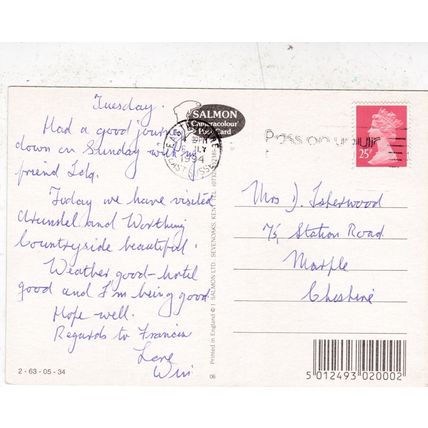 Tuesday.
Had a good journ
down on Sunday with
friend
Today we have visited
Arundel and Worthing
Countryside beautiful.
Weather good - hotel
good and I'm being good
Hope well.
Regards to Francis
Love
Win
2-63-05-34
SALMON
Cameracolour
Post Card
1994
EAST SUSSE
Printed in England © J SALMON LTD., SEVENOAKS, KENT
06
25
Mrs J. Isherwood
75, Station Road
Marple
Cheshire
5 012493 020002